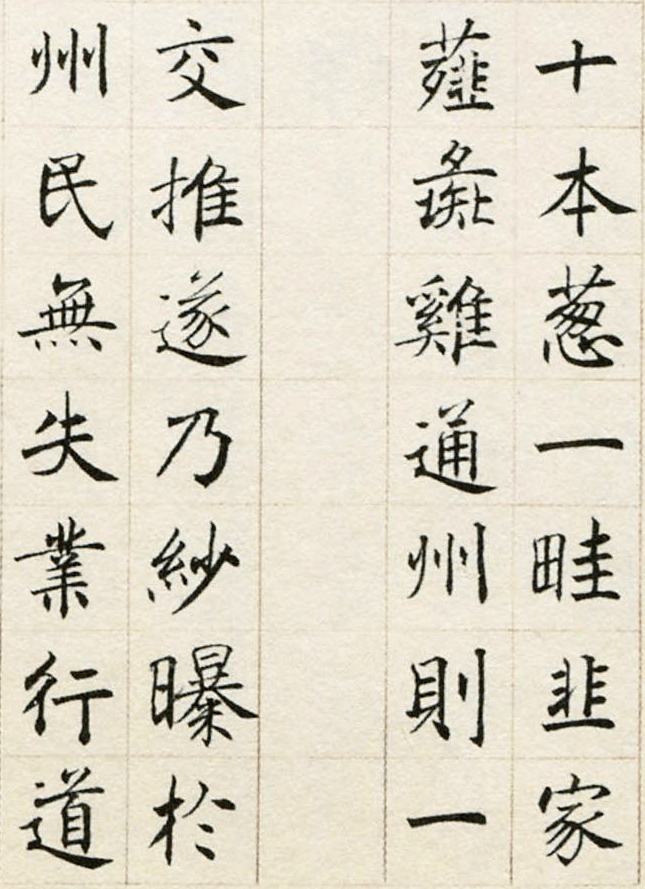 十本葱一畦韭家
薤彘雞通州則一
交推遂乃紗曝於
州民無失業行道